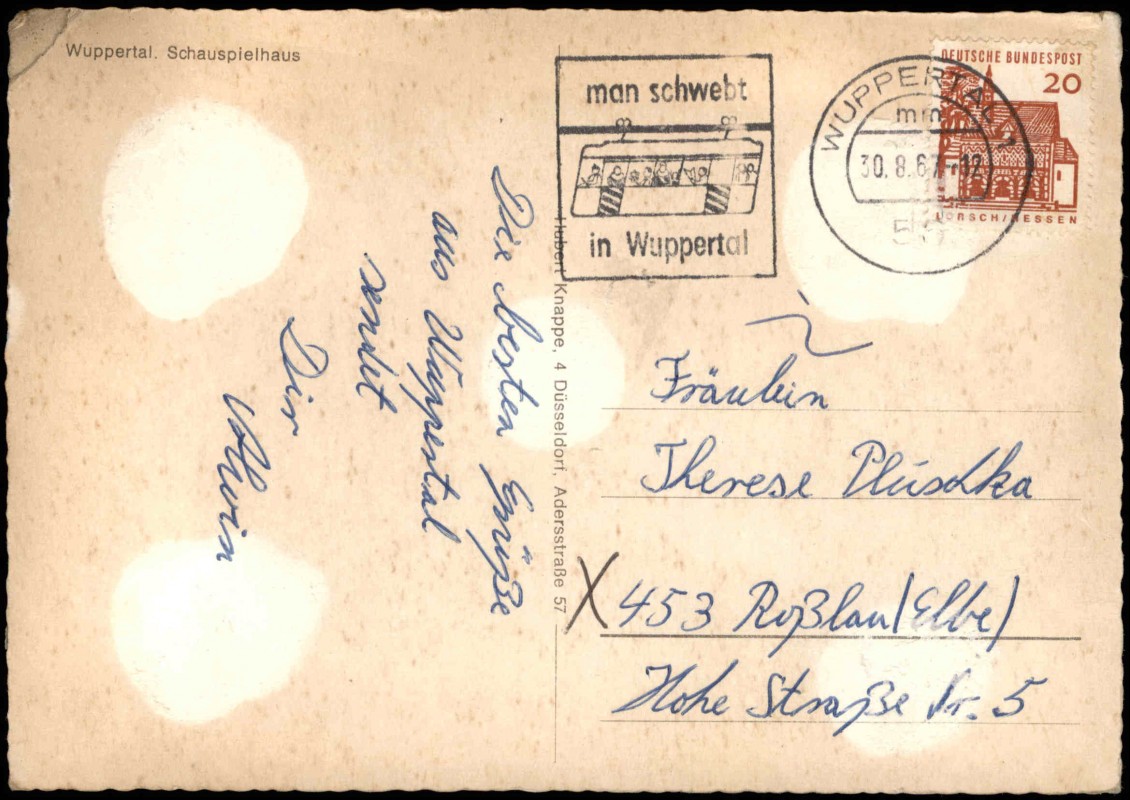 Wuppertal. Schauspielhaus
man schwebt
in Wuppertal
WUPPERTAL 1
mm
30.8.67-12
56
DEUTSCHE BUNDESPOST
20
LORSCH/HESSEN
Die besten Grüße
aus Wuppertal
sendet
Dir
Hubert Knappe, 4 Düsseldorf, Adersstraße 57
Fräulein
Therese Pluschka
X 453 Roßlau (Elbe)
Hohe Straße Nr. 5